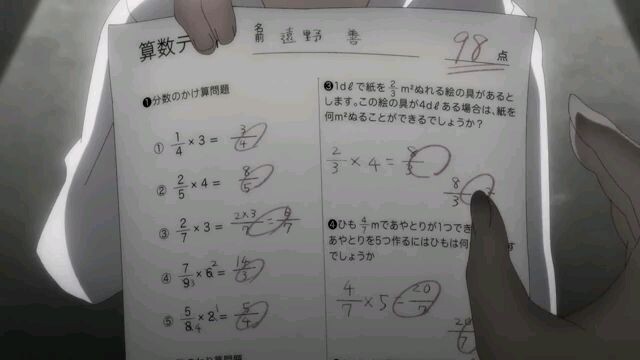 算数テ
名前 遠野 善
98点
❶分数のかけ算問題
① 1/4 × 3 = 3/4
② 2/5 × 4 = 8/5
③ 2/7 × 3 = 2×3/7 = 6/7
④ 7/9 3 × 6 2 = 14/3
⑤ 5/8 4 × 2 1 = 5/4
❸1dℓで紙を 2/3 m²ぬれる絵の具があると
します。この絵の具が4dℓある場合は、紙を
何m²ぬることができるでしょうか?
2/3 × 4 = 8/3
8/3
❹ひも 4/7 mであやとりが1つでき
あやとりを5つ作るにはひもは何
でしょうか
4/7 × 5 = 20/7